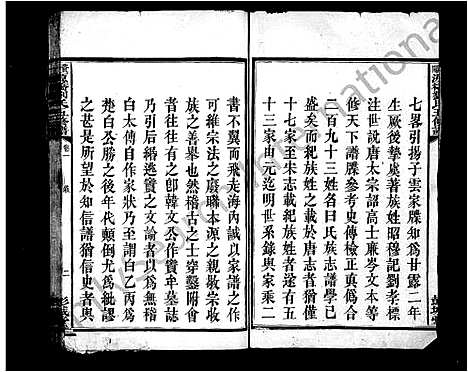 七畧引揚子雲家牒知為甘露二年
生厥後摯虞著族姓昭穆記劉孝標
注世說唐太宗詔高士廉岑文本等
修天下譜牒參考史傳檢正真偽合
二百九十三姓名曰氏族志譜學已
盛矣而紀族姓之載於唐志者猶僅
十三家至朱志載紀族姓者遂有五
十三家元迄明世系錄與家乘二
書不翼而飛走海內誠以家譜之作
可維宗法之廢聯本源之親敬宗收
族之善舉也然稽古之士穿鑿附會
者往往有之卽韓文公作竇牟墓誌
乃引后緡逃竇之文論者以為無稽
白太傅自作家狀乃至謂白乙丙為
楚白公勝之後年代顛倒尤為紕謬
之甚是所望於知信譜猶信史者與
卷一
二